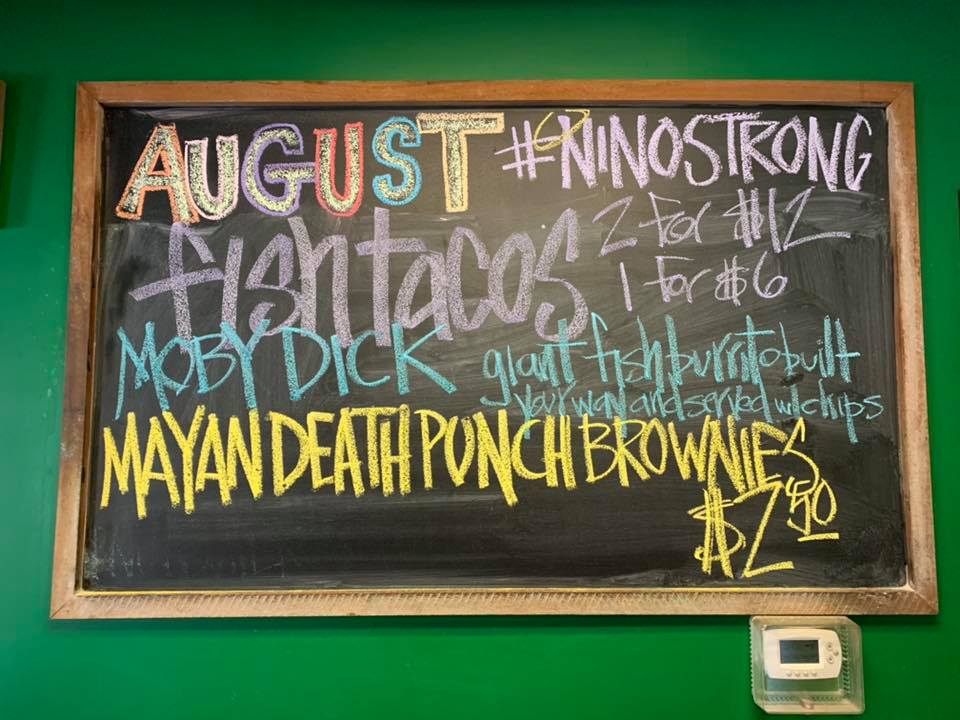 AUGUST #NINOSTRONG
fish tacos 2 for $12
1 for $6
MOBY DICK giant fish burrito built
your way and served w/chips
MAYAN DEATH PUNCH BROWNIES
$2.50